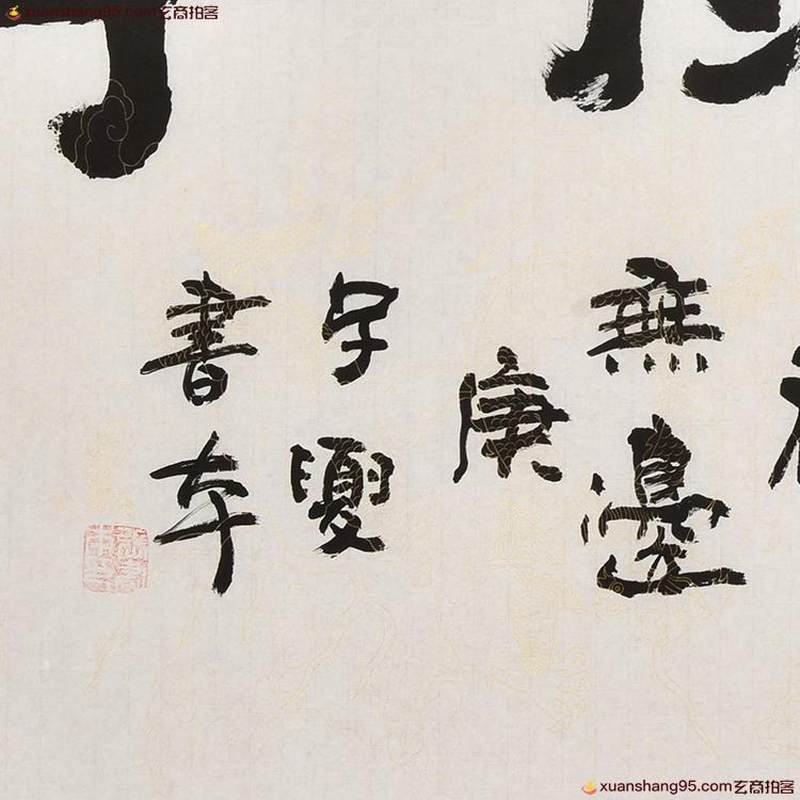 xuanshang95.com玄商拍客
無邊
庚
子夏
書
xuanshang95.com玄商拍客